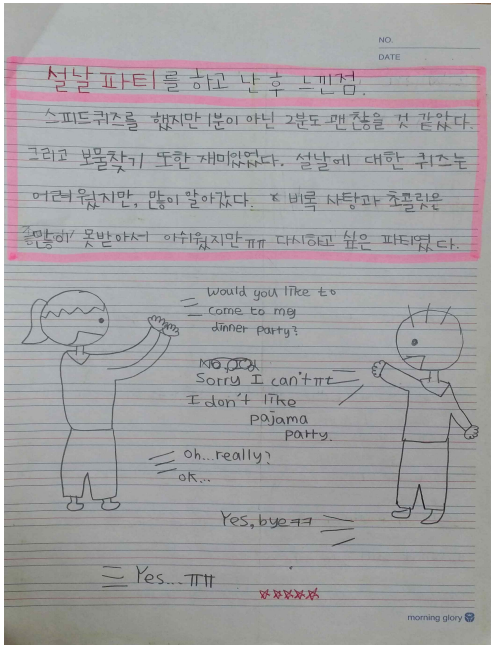 NO.
DATE
설날 파티를 하고 난 후 느낀점.
스피드퀴즈를 했지만 1분이 아닌 2분도 괜찮을 것 같았다.
그리고 보물찾기 또한 재미있었다. 설날에 대한 퀴즈는
어려웠지만, 많이 알아갔다. 비록 사탕과 초콜릿은
많이 못받아서 아쉬웠지만ㅠㅠ 다시하고 싶은 파티였다.
would you like to
come to my
dinner party?
Sorry I can't ㅠㅠ
I don't like
pajama
party.
oh...really?
ok...
Yes, byeㅋㅋ
Yes...ㅠㅠ
morning glory